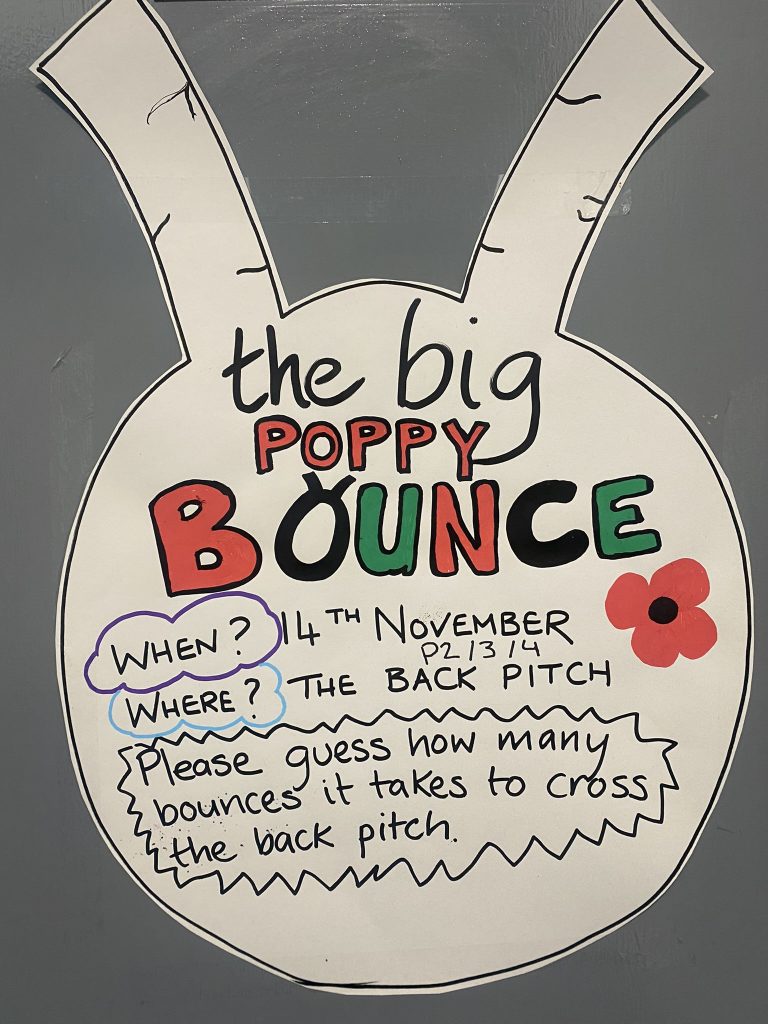 the big
POPPY
BOUNCE
WHEN? 14TH NOVEMBER
P2/3/4
WHERE? THE BACK PITCH
Please guess how many
bounces it takes to cross
the back pitch.